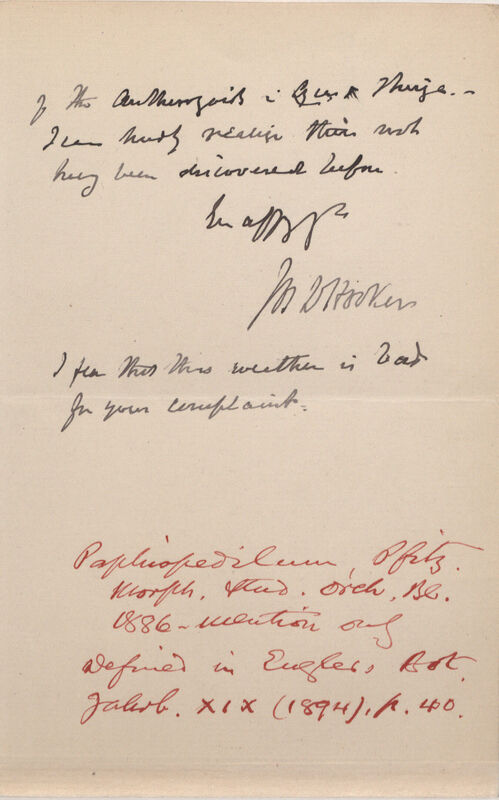 of the Antherozoids in & Thuja.—
I can hardly realize this not
having been discovered before.
Ever affy yrs
Jos D Hooker
I fear that this weather is bad
for your complaint.
Paphiopedilum, Pfitz.
Morph. Stud. Orch. Bl.
1886 – mention only
Defined in Engler, Bot.
Jahrb. XIX (1894), p. 40.